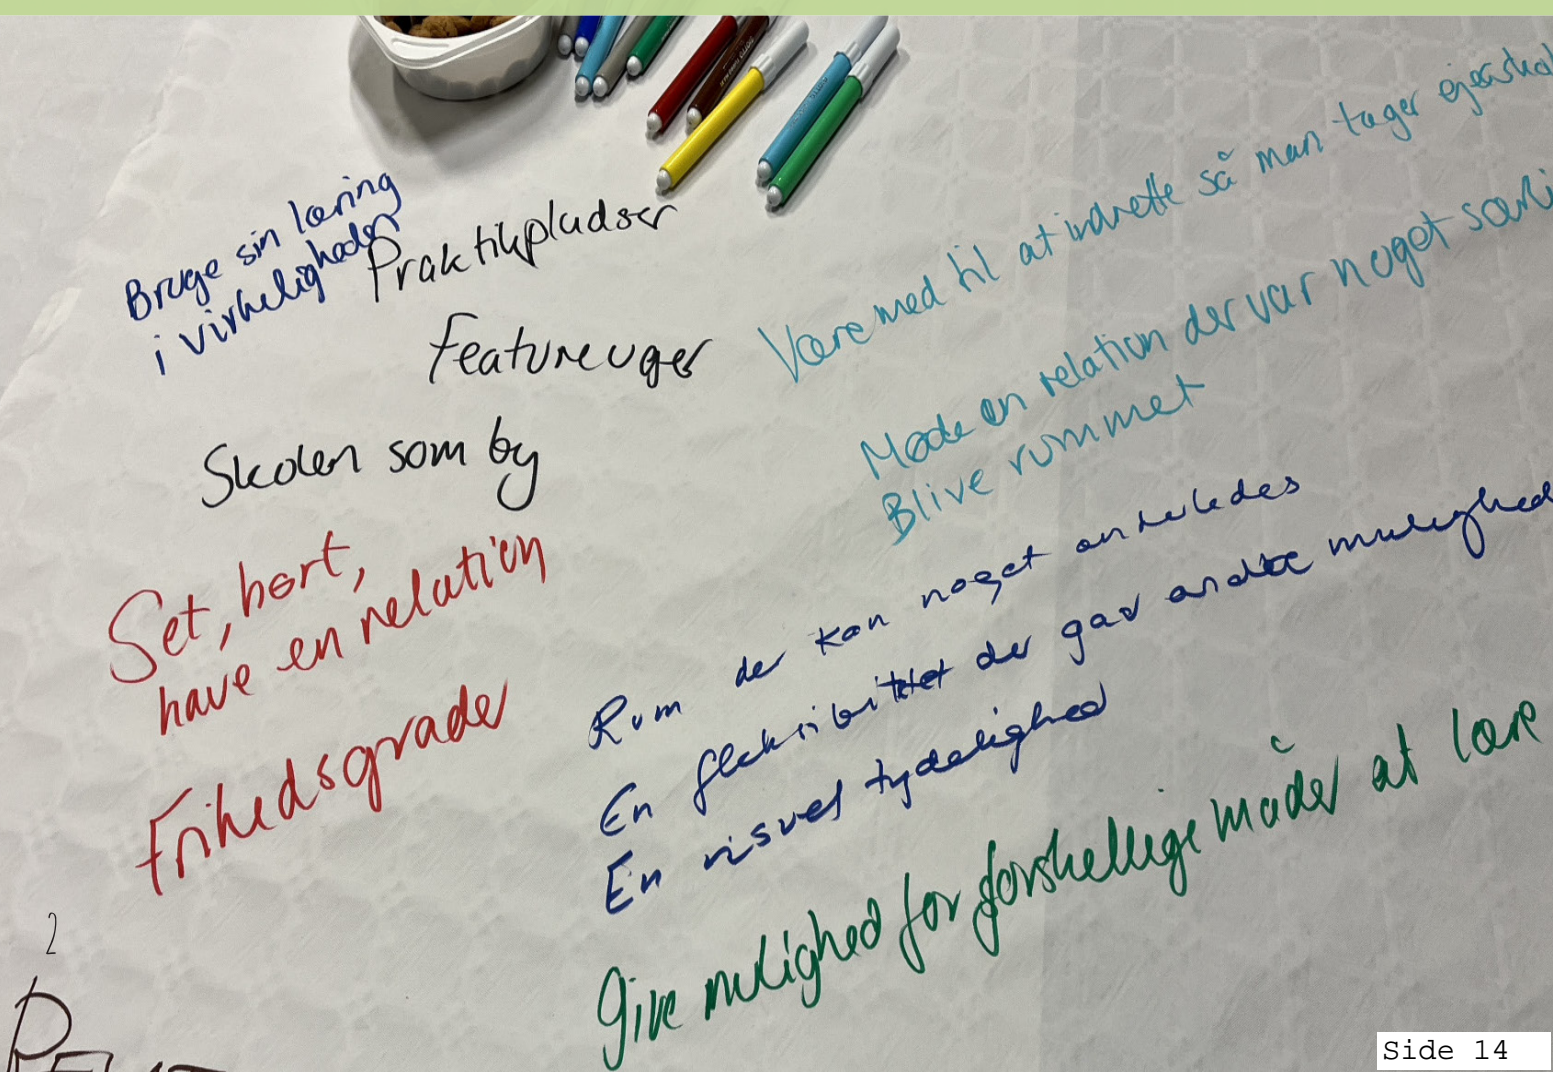 Bruge sin læring
i virkeligheden
Praktikpladser
Featureuger
Skolen som by
Set, hørt,
have en relation
Frihedsgrader
Være med til at indrette så man tager
Møde en relation der var noget
Blive rummet
Rum der kan noget anderledes
En der gav andre
En visuel tydelighed
Give mulighed for forskellige måder at lære
2
Side 14